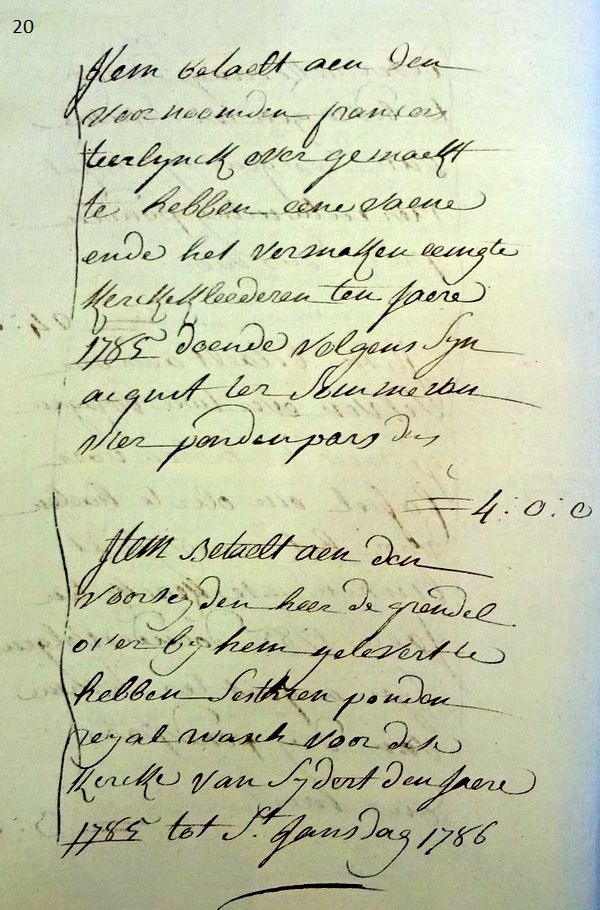 20
Item betaelt aen den
voornoemden francois
teerlynck over gemaekt
te hebben eene vaene
ende het vermaken eenigte
kerckekleederen ten jaere
1785 doende volgens syn
acquit ter somme van
vier ponden pars dus
4:0:0
Item betaelt aen den
voorseyden heer de grendel
over by hem gelevert te
hebben sesthien ponden
reyal wasch voor dese
kercke van den jaere
1785 tot St. Jansdag 1786